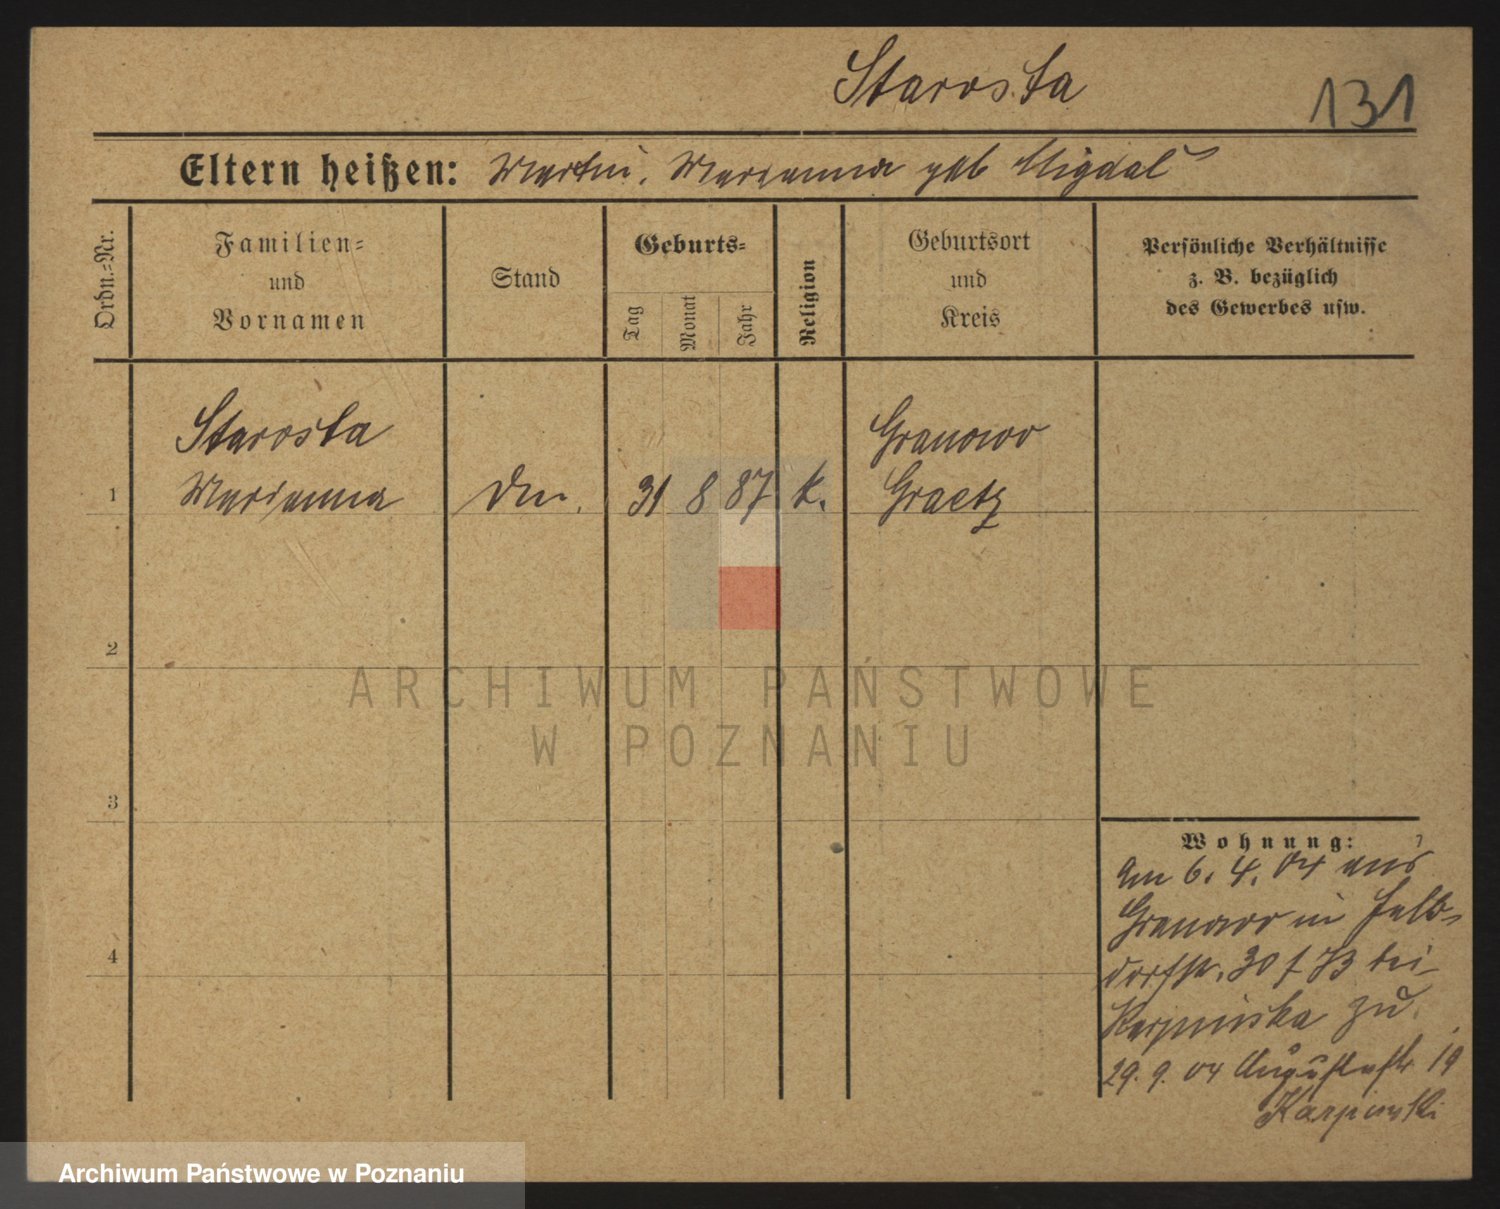 Starosta
131
Eltern heißen: Martin, Marianna geb Migdal
Ordn.-Nr.
Familien-
und
Vornamen
Stand
Geburts-
Tag
Monat
Jahr
Religion
Geburtsort
und
Kreis
Persönliche Verhältnisse
z. B. bezüglich
des Gewerbes usw.
Starosta
Granowo
1 Marianna 31 8 87 k. Graetz
2
3
4
ARCHIWUM PAŃSTWOWE
W POZNANIU
Wohnung:
Am 6. 4. 04 aus
Granowo in
30 bei
zu
29. 9. 04 Augustastr 19
Karpinski
Archiwum Państwowe w Poznaniu